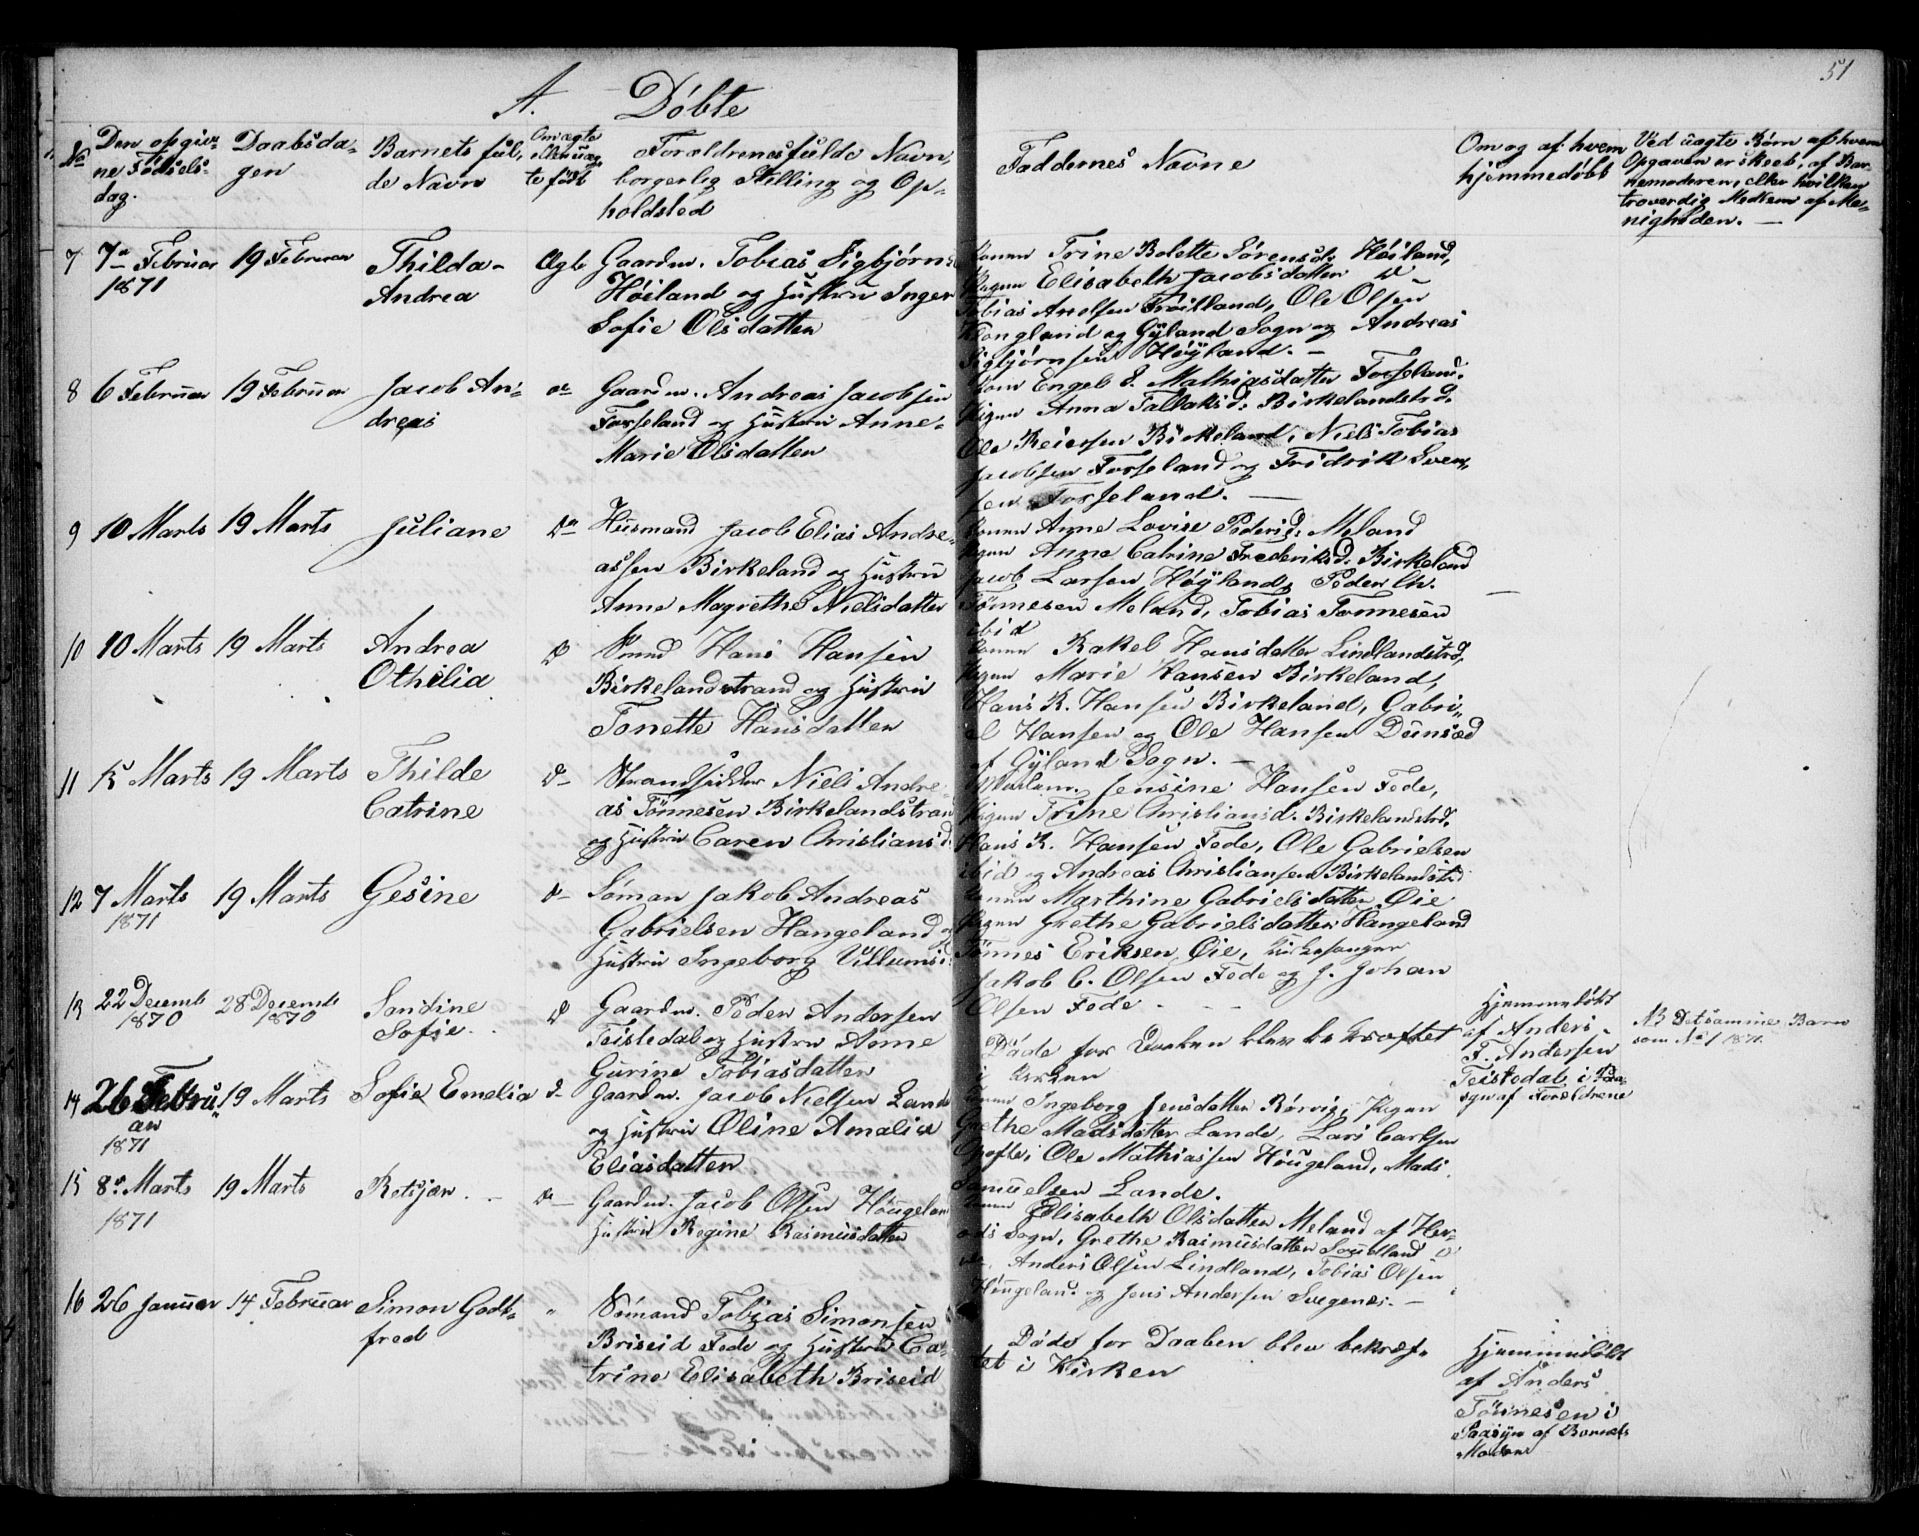 51
A. Døbte
No
Den opgiv-
ne Fødsels-
dag.
Daabsda-
gen
Barnets ful-
de Navn
Om ægte
eller uæg-
te født
Forældrenes fulde Navn,
borgerlig Stilling og Op-
holdsted
Faddernes Navne
Om og af hvem
hjemmedøbt
Ved uægte Børn af hvem
Opgaven er skeet, af Bar-
nemoderen, eller hvilken
troverdig Medlem af Me-
nigheden. —
7 7de Februar 19 Februar Thilda- Ægte Gaardm. Tobias Sigbjørns
1871 Andrea Høiland og Hustru Inger
Sofie Olsdatter
Konen Trine Bolette Sørensd. Høiland,
Pigen Elisabeth Jacobsdatter
Tobias Frøiland, Ole Olsen
Kongland og Gyland Sogn og Andreas
Sigbjørnsen Høyland. —
8 6 Februar 19 Februar Jacob An- Gaardm. Andreas Jacobsen
dreas Fosseland og Hustru Anne-
Marie Olsdatter
Kone Engel S. Mathiasdatter Fosseland.
Pigen Anna Tallaksd. Birkelandstrd.
Ole Reiersen Birkeland, Niels Tobias
Jacobsen Fosseland og Fridrik Sven,
sen Fosseland. —
9 10 Marts 19 Marts Juliane Do Husmand Jacob Elias Andre-
assen Birkeland og Hustru
Anne Magrethe Nielsdatter
Konen Anne Lovise Pedersd. Meland
Pigen Anne Catrine Frederiksd. Birkeland
Jacob Larsen Høyland, Peder Chr.
Tønnesen Meland, Tobias Tønnesen
ibid
10 10 Marts 19 Marts Andrea Smed Hans Hansen
Othilia Birkelandstrand og Hustru
Tonette Hansdatter
Konen Rakel Hansdatter Lindlandstrd,
Pigen Marie Hansen Birkeland,
Hans R. Hansen Birkeland, Gabri-
el Hansen og Ole Hansen Dunsæd
af Gyland Sogn. —
11 15 Marts 19 Marts Thilde Do Strandsidder Niels Andre-
Catrine as Tønnesen Birkelandstran
og Hustru Caren Christiansd.
Madam. Jensine Hansen Fede,
Pigen Trine Christiansd. Birkelandstrd.
Hans R. Hansen Fede, Ole Gabrielsen
ibid og Andreas Christiansen Birkelandstrd
12 7 Marts 19 Marts Gesine Søman Jakob Andreas
1871 Gabrielsen Hangeland og
Hustru Ingeborg Villumsd.
Konen Marthine Gabrielsdatter Øie
Pigen Grethe Gabrielsdatter Hangeland
Tønnes Eriksen Øie, Kirkesanger
Jakob C. Olsen Fede og J. Johan
Olsen Fede
13 22 Decemb 28 Decemb Sandine Gaardm. Peder Andersen
1870 1870 Sofie Teistedal og Hustru Anne
Gurine Tobiasdatter
Døde før Daaben blev bekræftet
i Kirken
Hjemmedøbt
af Anders
F. Andersen
Teistedal i
syn af Forældrene
NB Det samme Barn
som No 1 1871.
14 26 Febru- 19 Marts Sofie Emelia Gaardm. Jacob Nielsen Lande
ar og Hustru Oline Amalia
1871 Eliasdatter
Konen Ingeborg Jensdatter Rørvig, Pigen
Grethe Madsdatter Lande, Lars Carlsen
Opofte, Ole Mathiassen Høugeland, Mads
Samuelsen Lande.
15 8de Marts 19 Marts Retsjær Do Gaardm. Jacob Olsen Høugeland
1871 Hustru Regine Rasmusdatter
Konen Elisabeth Olsdatter Meland af Her-
ads Sogn, Grethe Rasmusdatter
Anders Olsen Lindland, Tobias Olsen
Høugeland og Jens Andersen Svegenæs. —
16 26 Januar 14 Februar Simon Godt- Sømand Tobias Simonsen
fred Briseid Fede og Hustru Ca-
trine Elisabeth Briseid
Døde før Daaben blev bekræf-
tet i Kirken
Hjemmedøbt
af Anders
Tønnesen i
Paasyn af Barnets
Moder